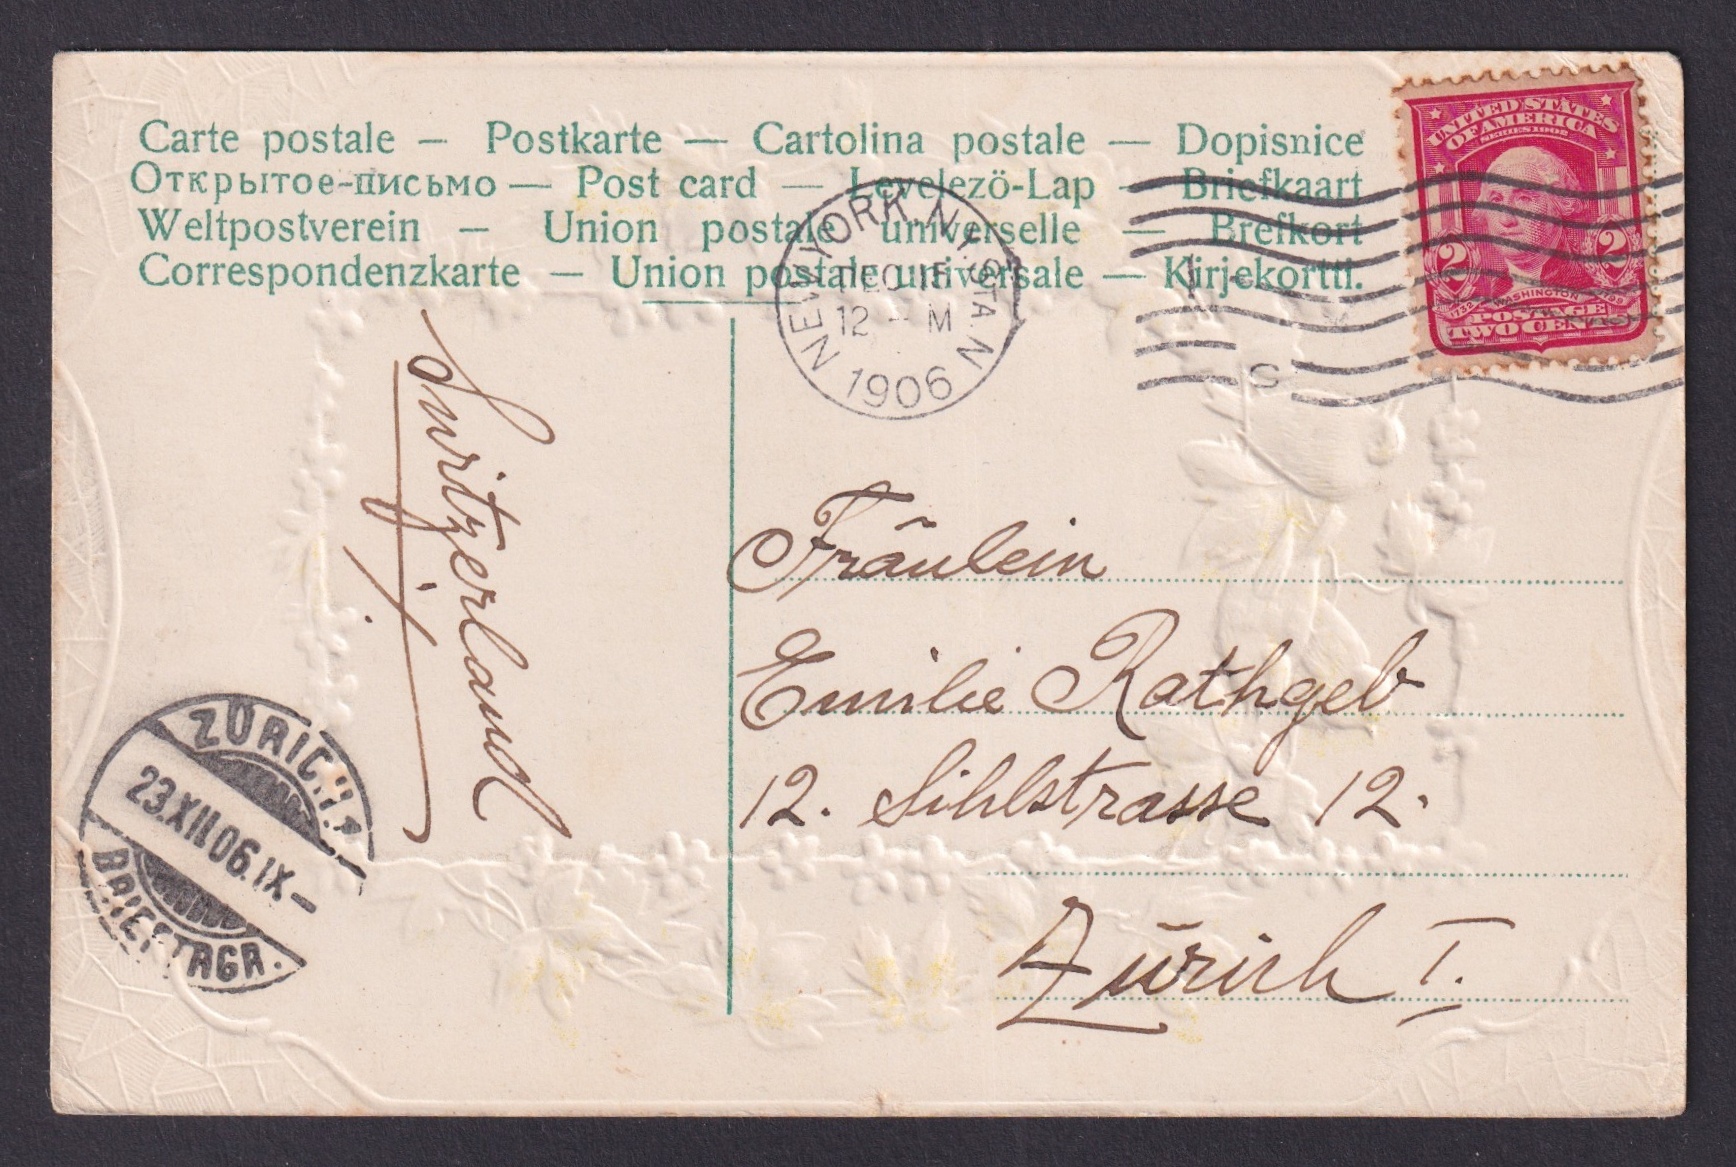 Carte postale — Postkarte — Cartolina postale — Dopisnice
Открытое-письмо — Post card — Levelezö-Lap — Briefkaart
Weltpostverein — Union postale universelle — Brefkort
Correspondenzkarte — Union postale universale — Kirjekortti.
UNITED STATES
OF AMERICA
SERIES 1902
2 2
1732 WASHINGTON 1799
POSTAGE
TWO CENTS
NEW YORK, N.Y. STA. N
12 - M
1906
C
Switzerland
Fräulein
Emilie Rathgeb
12. Sihlstrasse 12.
Zürich I.
ZÜRICH 1
23.XII.06.IX-
BRIEFTRGR.